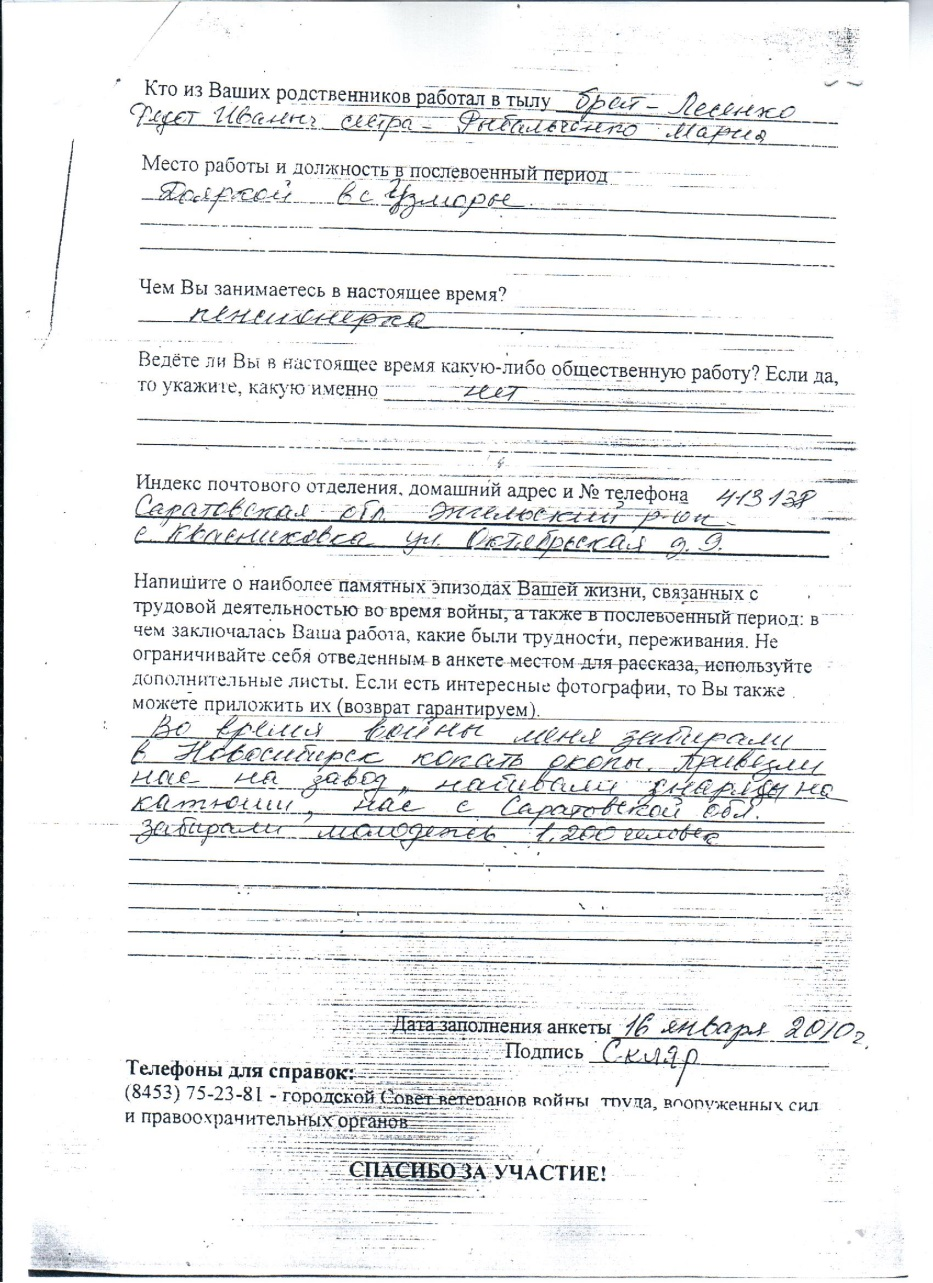 Кто из Ваших родственников работал в тылу брат - Лесенко
Федот Иваныч сестра - Рыбальченко Мария
Место работы и должность в послевоенный период
Дояркой в с Узморье.
Чем Вы занимаетесь в настоящее время?
пенсионерка
Ведёте ли Вы в настоящее время какую-либо общественную работу? Если да,
то укажите, какую именно нет
Индекс почтового отделения, домашний адрес и № телефона 413138
Саратовская обл. Энгельский р-он-
с Квасниковка ул. Октябрьская д. 9.
Напишите о наиболее памятных эпизодах Вашей жизни, связанных с
трудовой деятельностью во время войны, а также в послевоенный период: в
чем заключалась Ваша работа, какие были трудности, переживания. Не
ограничивайте себя отведенным в анкете местом для рассказа, используйте
дополнительные листы. Если есть интересные фотографии, то Вы также
можете приложить их (возврат гарантируем).
Во время войны меня забирали
в Новосибирск копать окопы. Привезли
нас на завод, набивали снаряды на
катюши, нас с Саратовской обл.
забирали молодежь 1.200 человек
Дата заполнения анкеты 16 января 2010 г.
Подпись Скляр
Телефоны для справок:
(8453) 75-23-81 - городской Совет ветеранов войны, труда, вооруженных сил
и правоохранительных органов
СПАСИБО ЗА УЧАСТИЕ!